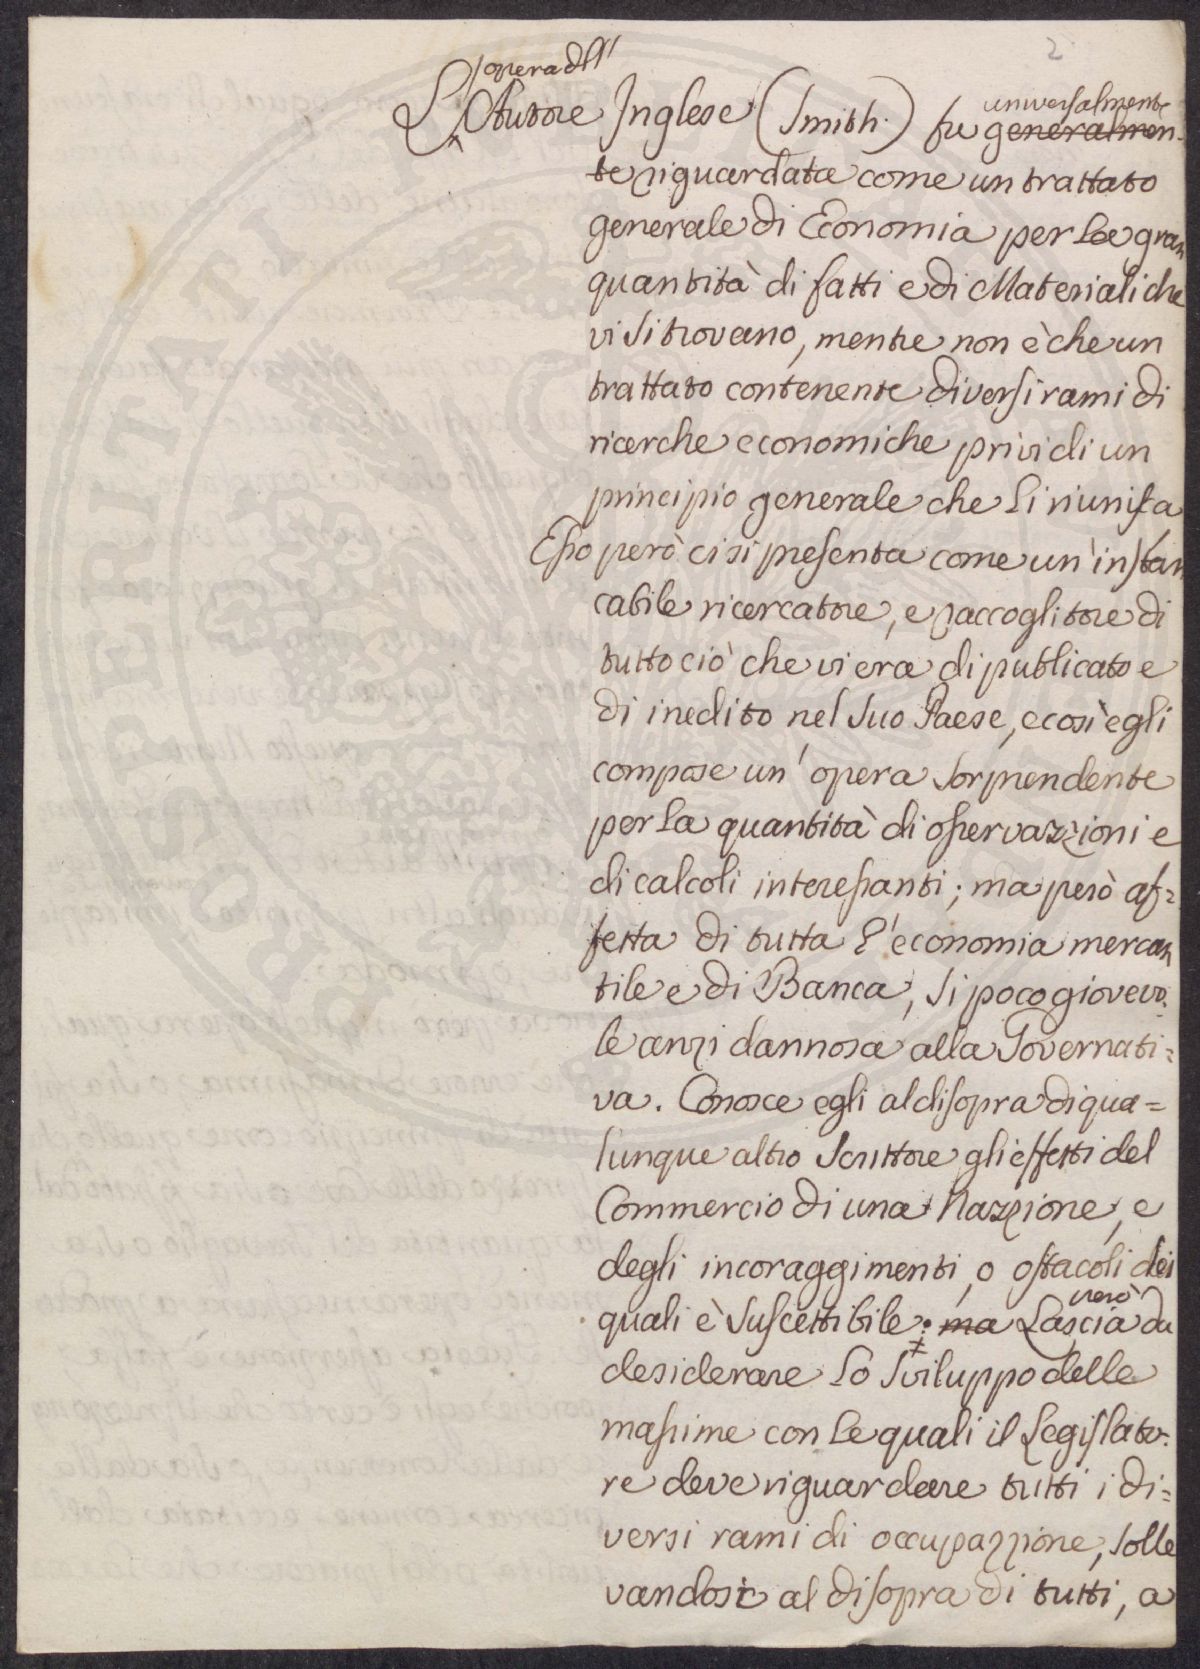 2
opera dell'
L'Autore Inglese (Smith.) fu generalmen-
universalmente
te riguardata come un trattato
generale di Economia per la gran
quantità di fatti e di Materiali che
vi si trovano, mentre non è che un
trattato contenente diversi rami di
ricerche economiche privi di un
principio generale che li riunisca
Esso però ci si presenta come un'instan
cabile ricercatore, e raccoglitore di
tutto ciò che vi era di publicato e
di inedito nel suo Paese, e così egli
compose un'opera sorprendente
per la quantità di osservazzioni e
di calcoli interessanti; ma però af=
fetta di tutta l'economia mercan
tile e di Banca, si poco giovevo=
le anzi dannosa alla Governati=
va. Conosce egli al disopra di qua=
lunque altro Scrittore gli effetti del
Commercio di una Nazzione, e
degli incoraggimenti, o ostacoli dei
quali è suscettibile: ma Lascia da
però
desiderare lo sviluppo delle
massime con le quali il Legislato=
re deve riguardare tutti i di=
versi rami di occupazzione, solle
vandosi al disopra di tutti, a